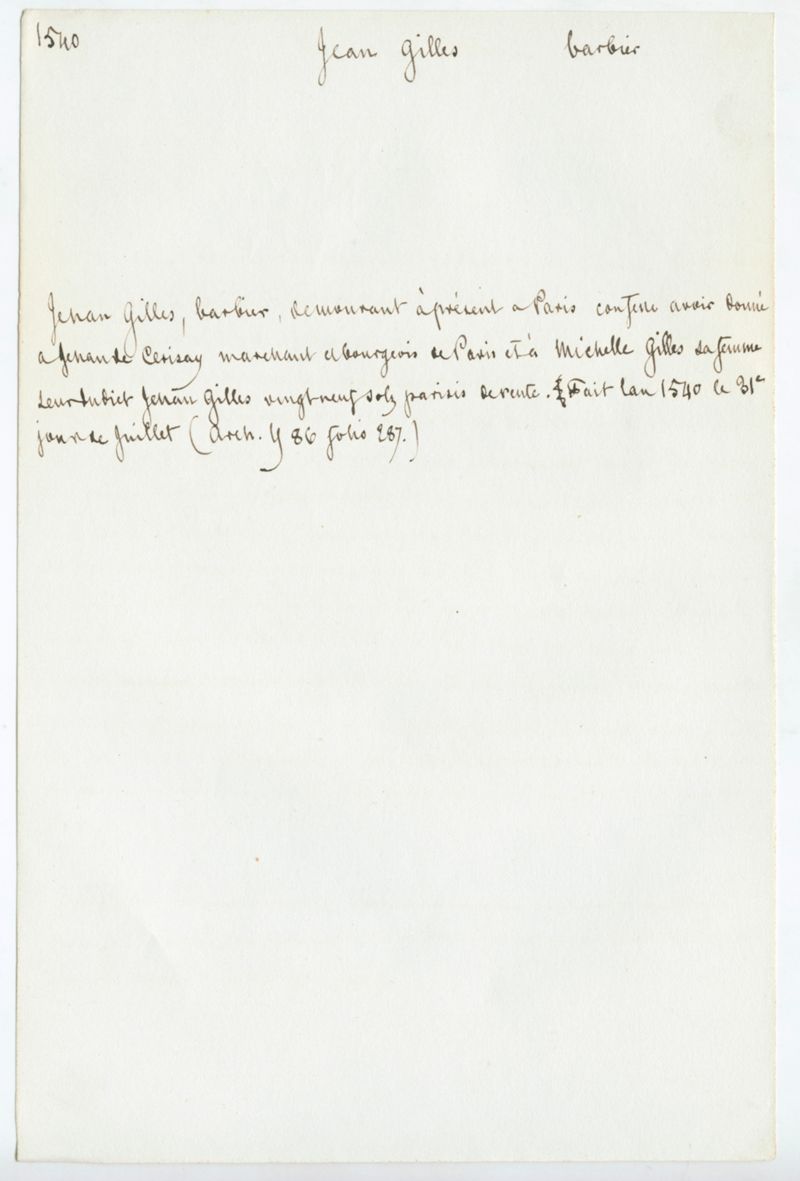 1540
Jean Gilles barbier
Jehan Gilles, barbier, demourant à présent a Paris confesse avoir donné
a Jehan de Cerisay marchant et bourgeois de Paris et à Michelle Gilles sa femme
Jehan Gilles vingt neuf solz parisis de rente. Fait lan 1540 le 31e
jour de Juillet (Arch. Y 86 folio 287.)